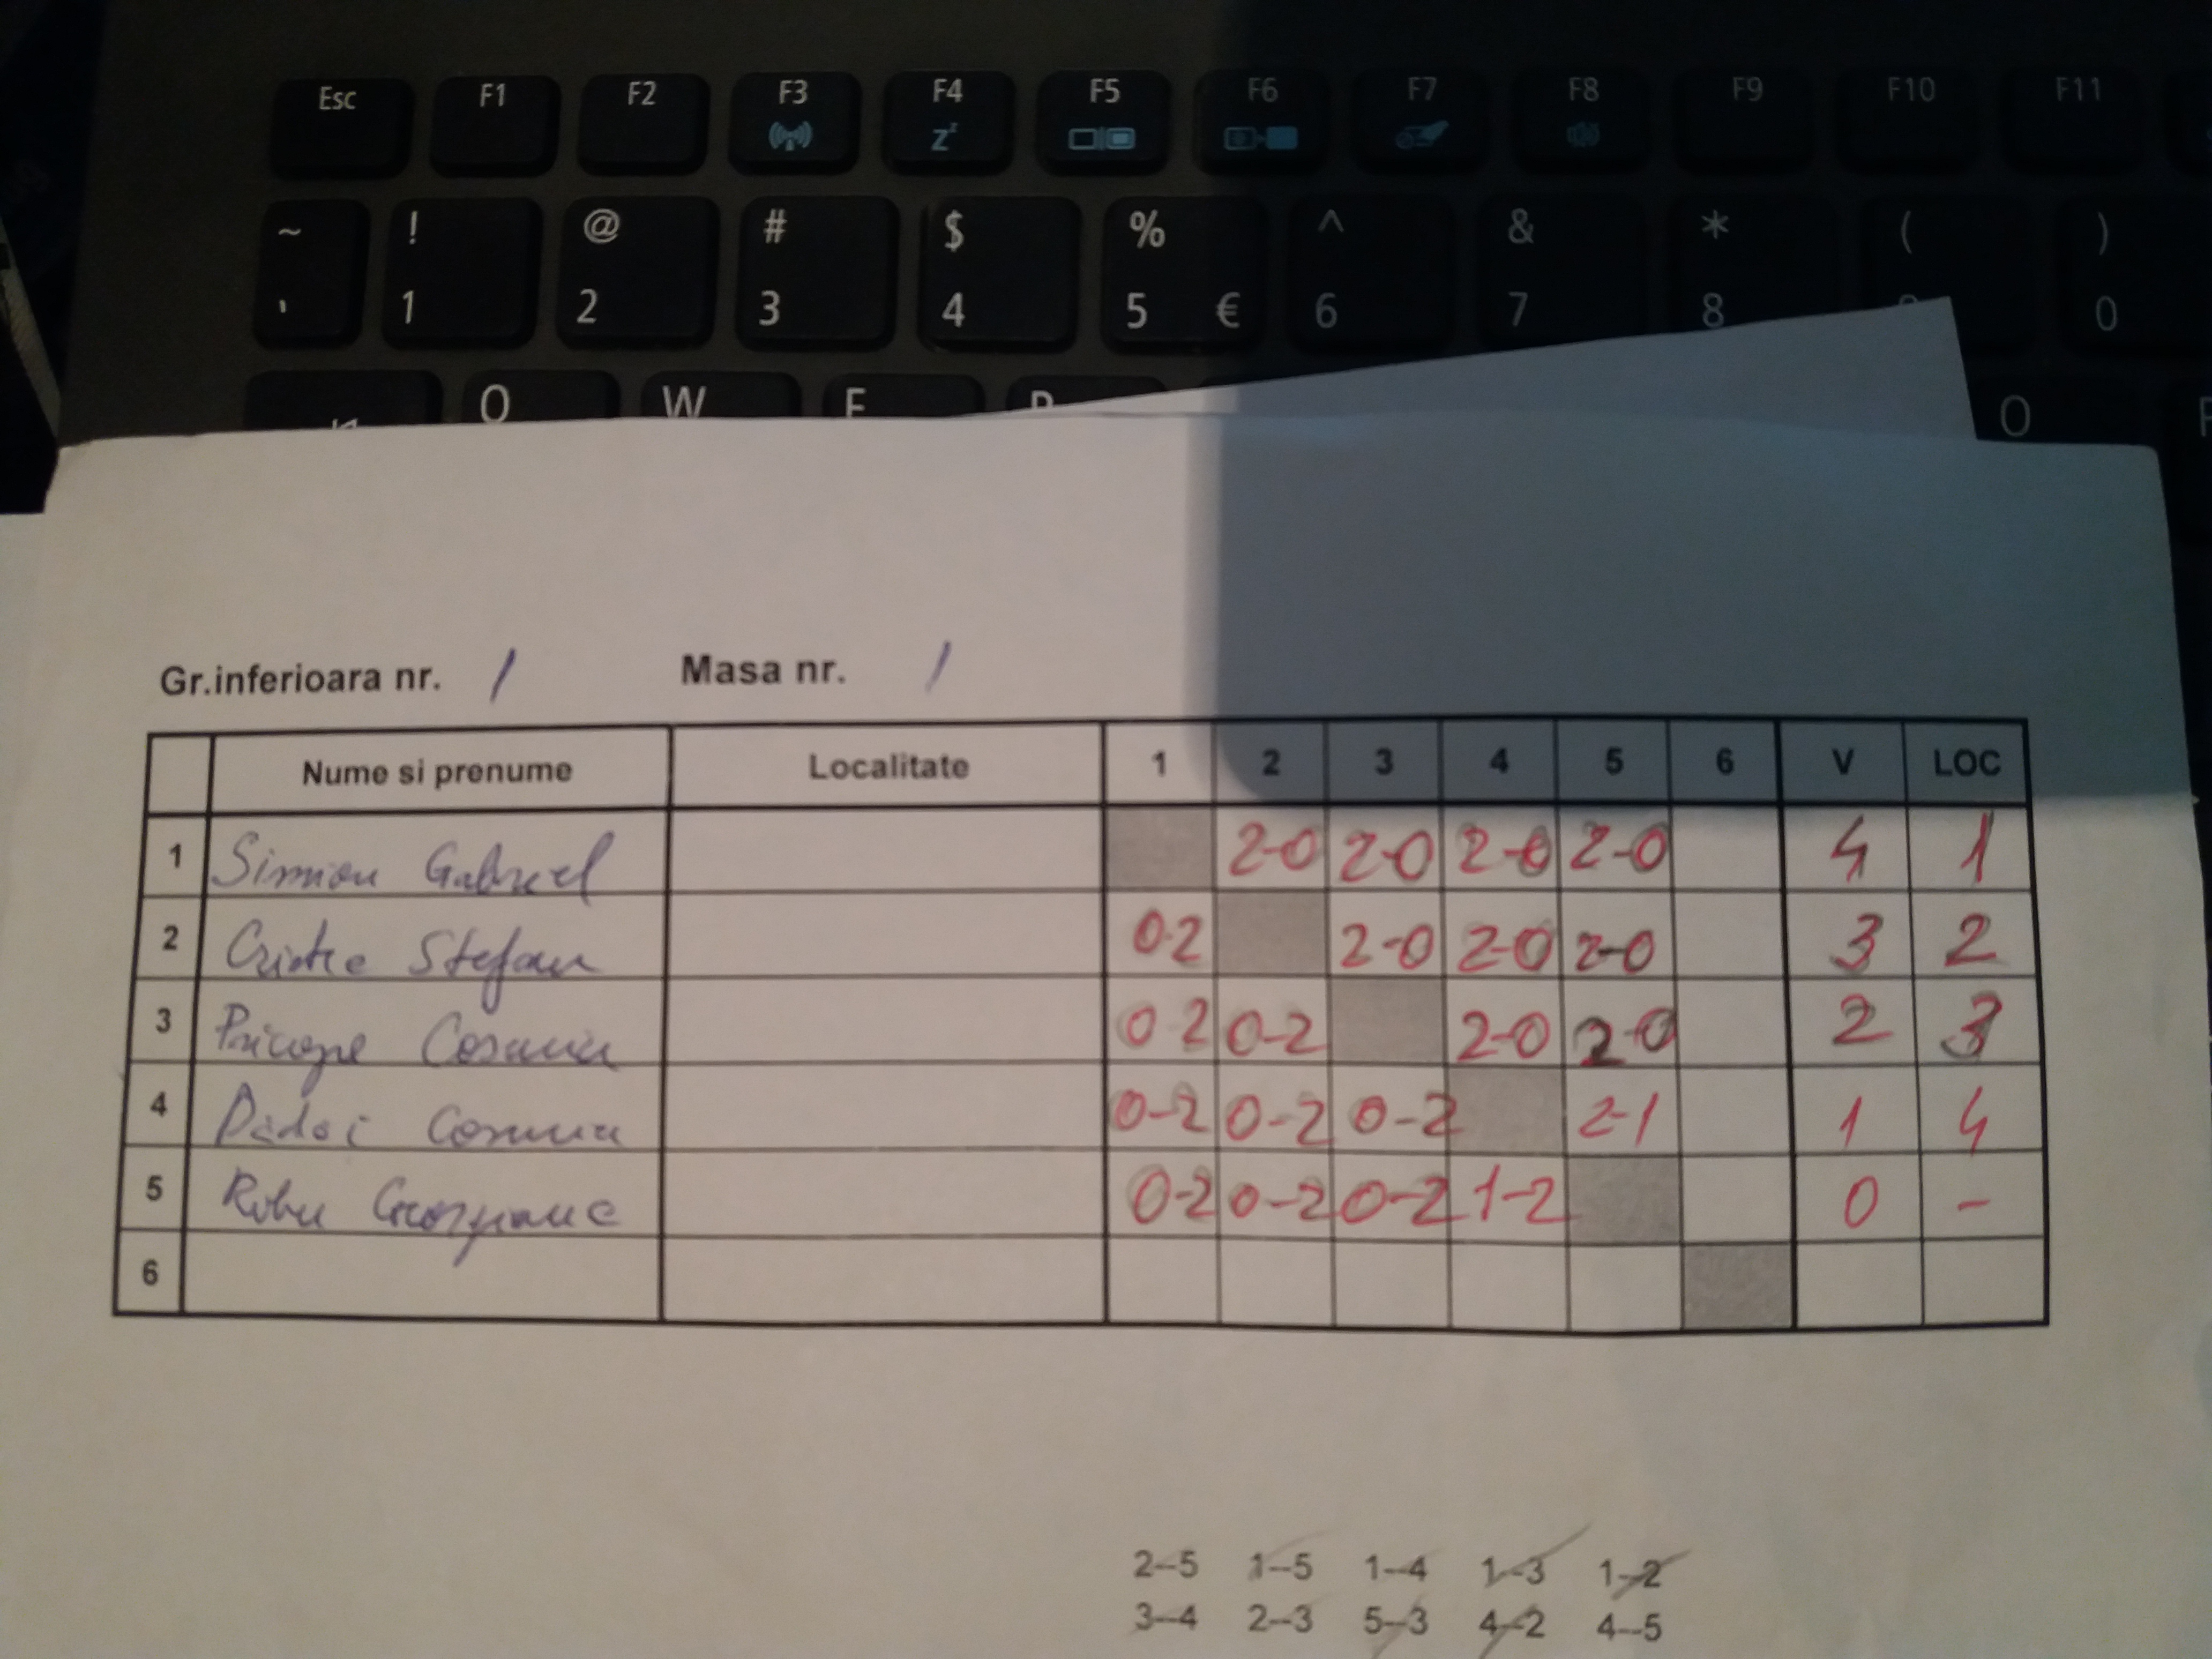 Esc F1 F2 F3 F4 F5 F6 F7 F8 F9 F10 F11
~ ! @ # $ % ^ & * ( )
' 1 2 3 4 5 € 6 7 8 0
Q W E R O P
Gr.inferioara nr. 1 Masa nr. 1
Nume si prenume Localitate 1 2 3 4 5 6 V LOC
1 Simion Gabriel 2-0 2-0 2-0 2-0 4 1
2 Stefan 0-2 2-0 2-0 2-0 3 2
3 Pricope Cosmin 0-2 0-2 2-0 2-0 2 3
4 Cosmin 0-2 0-2 0-2 2-1 1 4
5 Robu 0-2 0-2 0-2 1-2 0 -
6
2--5 1--5 1--4 1--3 1--2
3--4 2--3 5--3 4--2 4--5